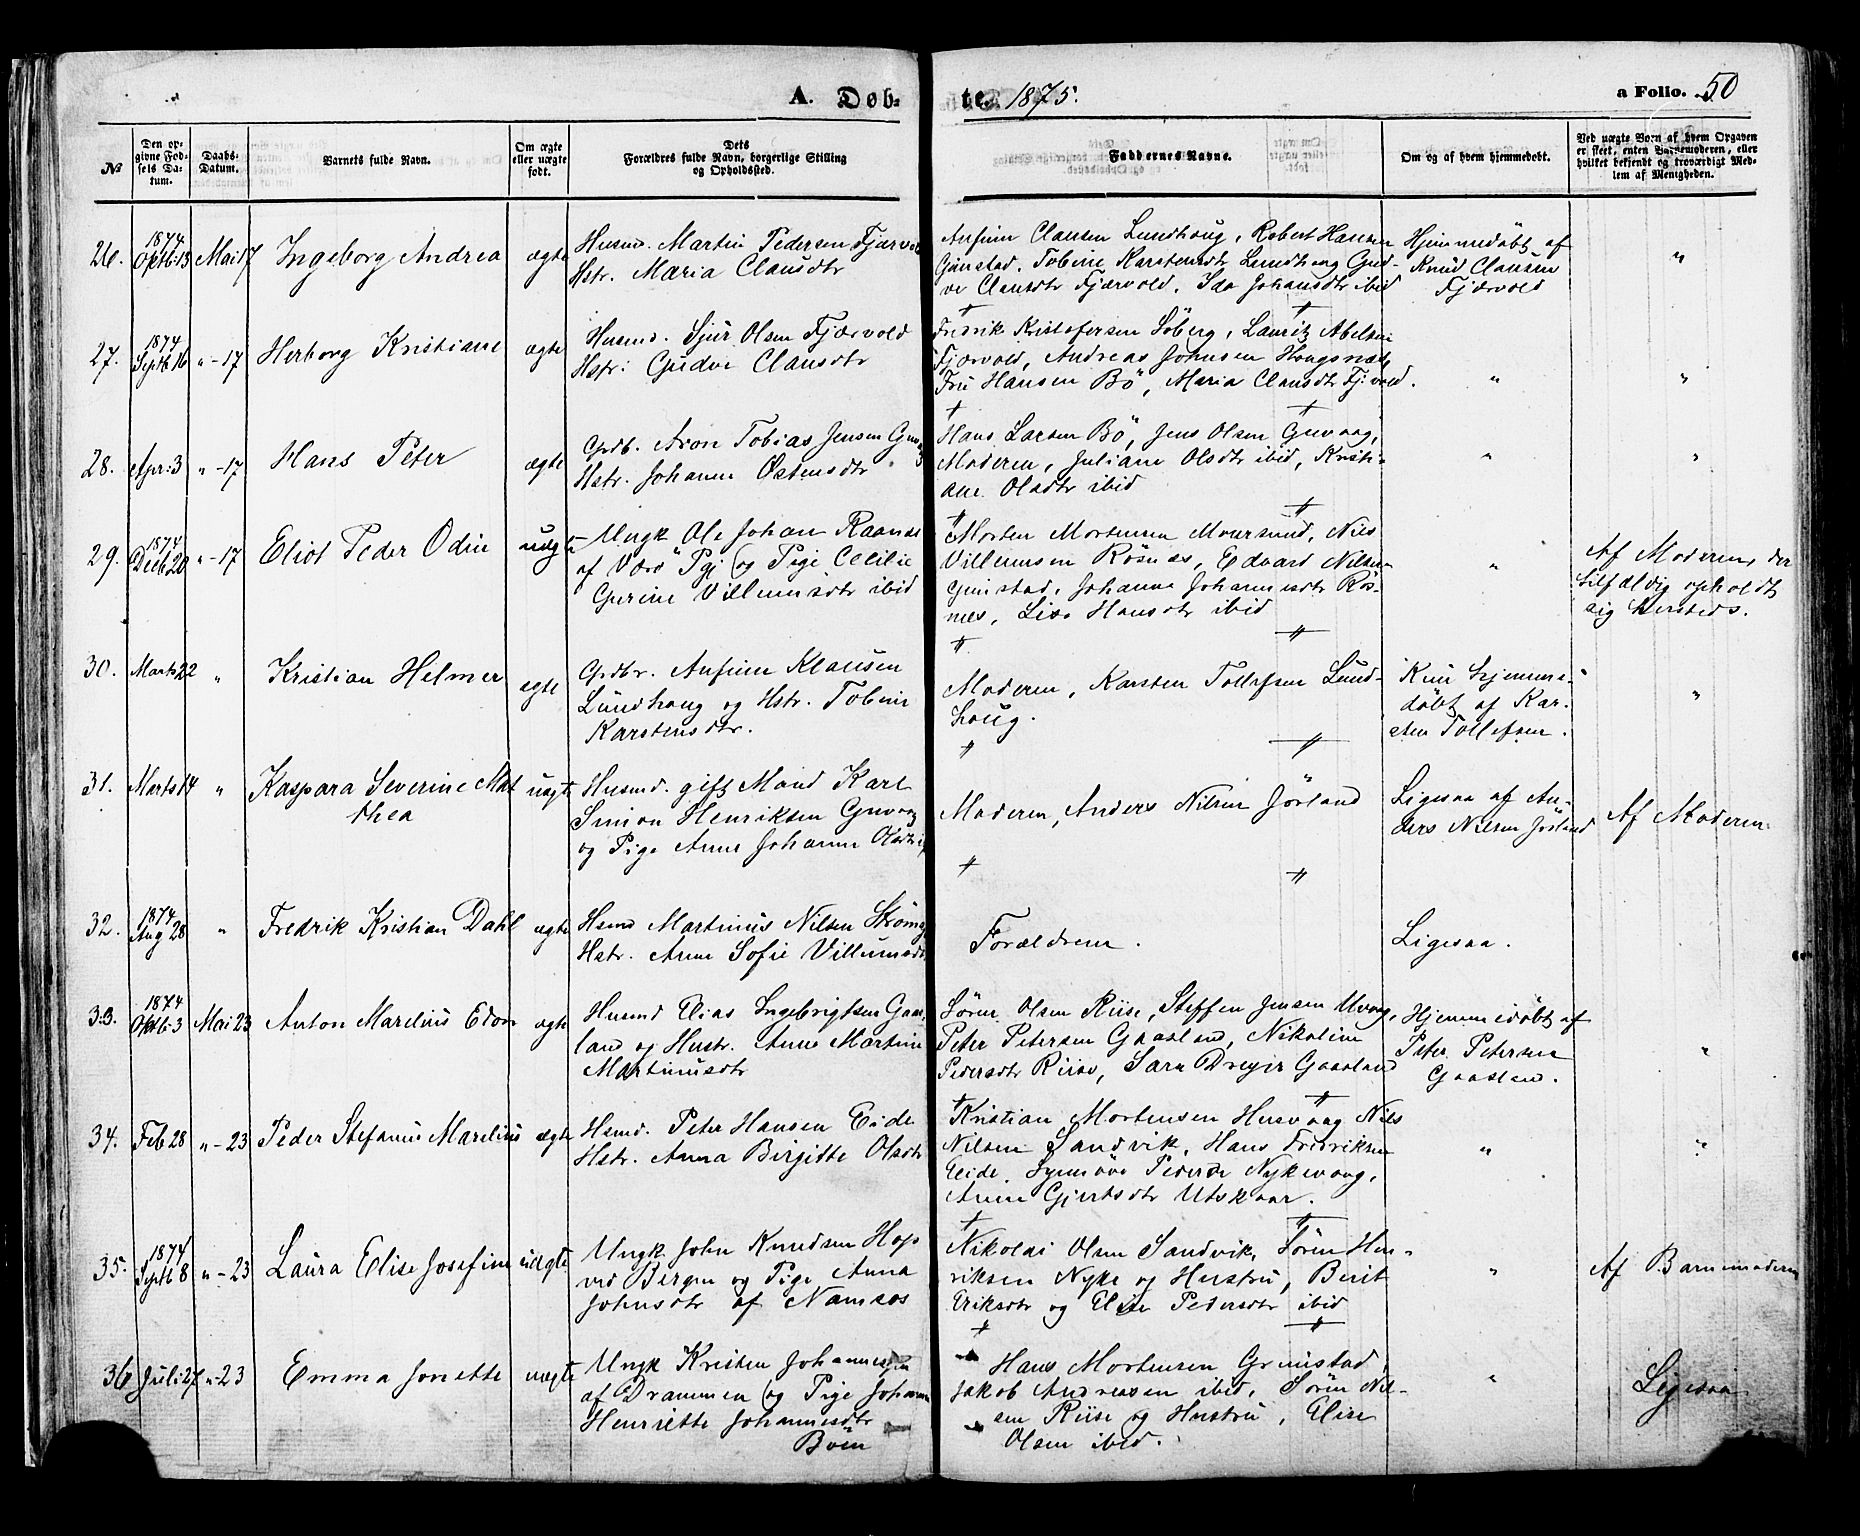 A. Døb-
te. 1875.
a Folio. 50
No
Den op-
givne Fød-
sels Da-
tum.
Daabs-
Datum.
Barnets fulde Navn.
Om ægte
eller uægte
født.
Dets
Forældres fulde Navn, borgerlige Stilling
og Opholdssted.
Faddernes Navne.
Om og af hvem hjemmedøbt.
Ved uægte Børn af hvem Opgaven
er skeet, enten Barnemoderen, eller
hvilket bekjendt og troværdigt Med-
lem af Menigheden.
26.
1874
Oktb: 13
Mai 17
Ingeborg Andrea
ægte
Husmd. Martin Pedersen Fjærvold
Hstr. Maria Clausdtr
Anfinn Clausen Lundhaug, Robert Hansen
Grinstad, Tobine Karstensdtr Lundhaug Gud-
ve Clausdtr Fjærvold, Ida Johansdtr ibid
Hjemmedöbt af
Knud Clausen
Fjærvold
"
27.
1874
Septb 16
" - 17
Herborg Kristiane
ægte
Husmd. Sjur Olsen Fjærvold
Hstr: Gudve Clausdtr
Fredrik Kristofersen Söberg, Lauritz Abelsen
Fjærvold, Andreas Johnsen Hougsnæs,
Fru Hansen Bö, Maria Clausdtr Fj.vold.
"
"
28.
Apr: 3
" - 17
Hans Peter
ægte
Grdb. Aron Tobias Jensen Guvaag
Hstr. Johanne Östensdtr
Hans Larsen Bö, Jens Olsen Guvaag,
Moderen, Juliane Olsdtr ibid, Kristi-
ane Olsdtr ibid
"
"
29.
1874
Decb 20
" - 17
Eliot Peder Odin
uægt
Ungk Ole Johan Raanse
af Værö Pgj og Pige Cecilie
Gurine Villumsdtr ibid
Morten Mortensen Moursund, Nils
Villumsen Rösnes, Edvard Nilsen
Grimstad, Johanne Johannesdtr Rös-
nes, Lise Hansdtr ibid
"
Af Moderen, der
tilfældig opholdt
sig hersteds.
30.
Marts 22
"
Kristian Helmer
ægte
Grdbr. Anfinn Klausen
Lundhaug og Hstr. Tobine
Karstensdtr.
Moderen, Karsten Tollefsen Lund-
haug.
Kun hjemme-
döbt af Kar-
sten Tollefsen.
"
31.
Marts 14
"
Kaspara Severine Mat
thea
uægte
Husmd. gift Mand Karl
Simon Henriksen Guvaag
og Pige Anne Johanne Olsdtr
Moderen, Anders Nilsen Jörland
Ligesaa af An-
ders Nilsen Jörland
Af Moderen.
32.
1874
Aug 28
"
Fredrik Kristian Dahl
ægte
Hsmd Martinus Nilsen Strömg
Hstr. Anne Sofie Villumsdtr
Forældrene.
Ligesaa.
33.
1874
Oktb: 3
Mai 23
Anton Marelius Edon
ægte
Husmd Elias Ingebrigtsen Gaas
land og Hustr. Anne Martine
Martinusdtr
Sören Olsen Riise, Steffen Jensen Uvaag,
Peter Petersen Gaasland, Nikoline
Pedersdtr Riise, Sara Dreyer Gaasland
Hjemmedöbt af
Peter Petersen
Gaaslan.
"
34.
Feb 28
" - 23
Peder Stefanus Marelius
ægte
Hsmd. Peter Hansen Eide
Hstr. Anna Birgitte Olsdtr
Kristian Mortensen Husvaag Nils
Nilsen Sandvik, Hans Fredriksen
Eide, Synnöve Pedersdr Nykvaag,
Anne Gjertsdtr Utskaar.
"
"
35.
1874
Septb 8
" - 23
Laura Elise Josefine
uægte
Ungk John Knudsen Hop
ved Bergen og Pige Anna
Johnsdtr af Namsos
Nikolai Olsen Sandvik, Sören Hen-
riksen Nyke og Hustru, Berit
Eriksdtr og Elise Pedersdtr ibid
"
Af Barnemoderen
36
Juli: 27
" - 23
Emma Jonette
uægte
Ungk Kristen Johannesen
af Drammen og Pige Johanne
Henriette Johannesdtr
Böen
Hans Mortensen Grimstad,
Jakob Andreasen ibid, Sören Nil-
sen Riise og Hustru, Elise
Olsen ibid.
"
Ligesaa